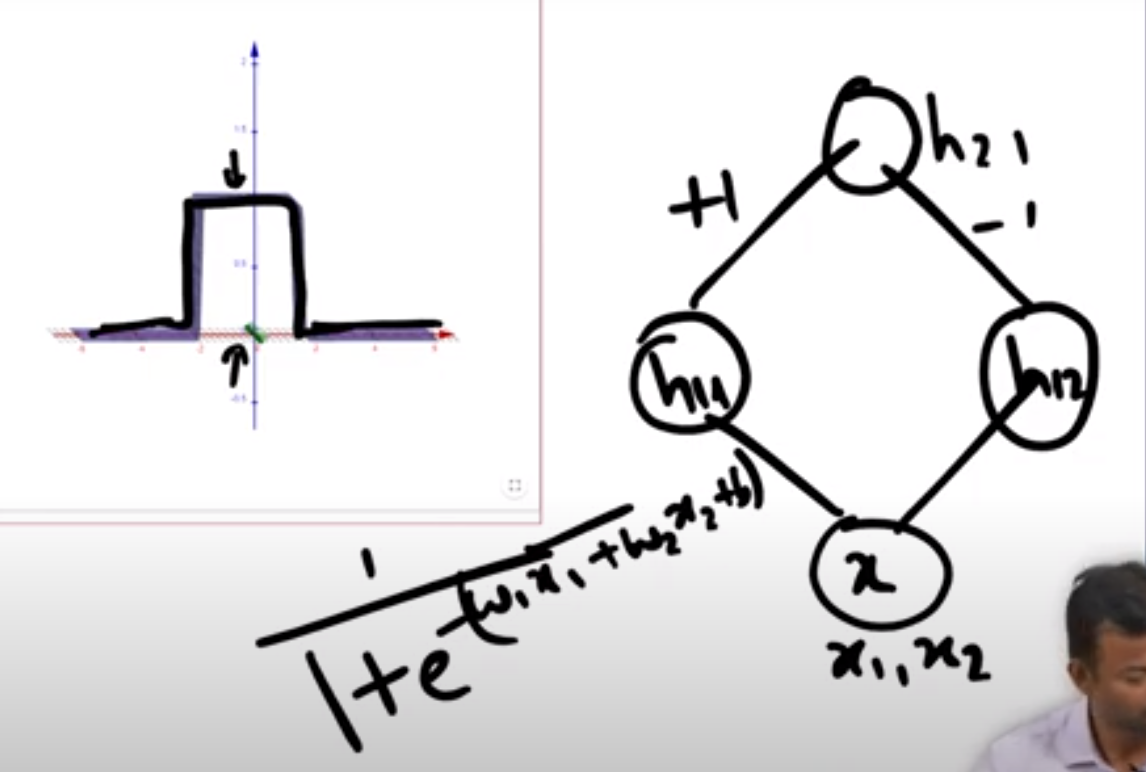 2
1.5
0.5
-6 -4 -2 0 2 4 6
-0.5
h21
+1
-1
h11
h12
x
x1, x2
1
1+e-(w1x1+w2x2+b)